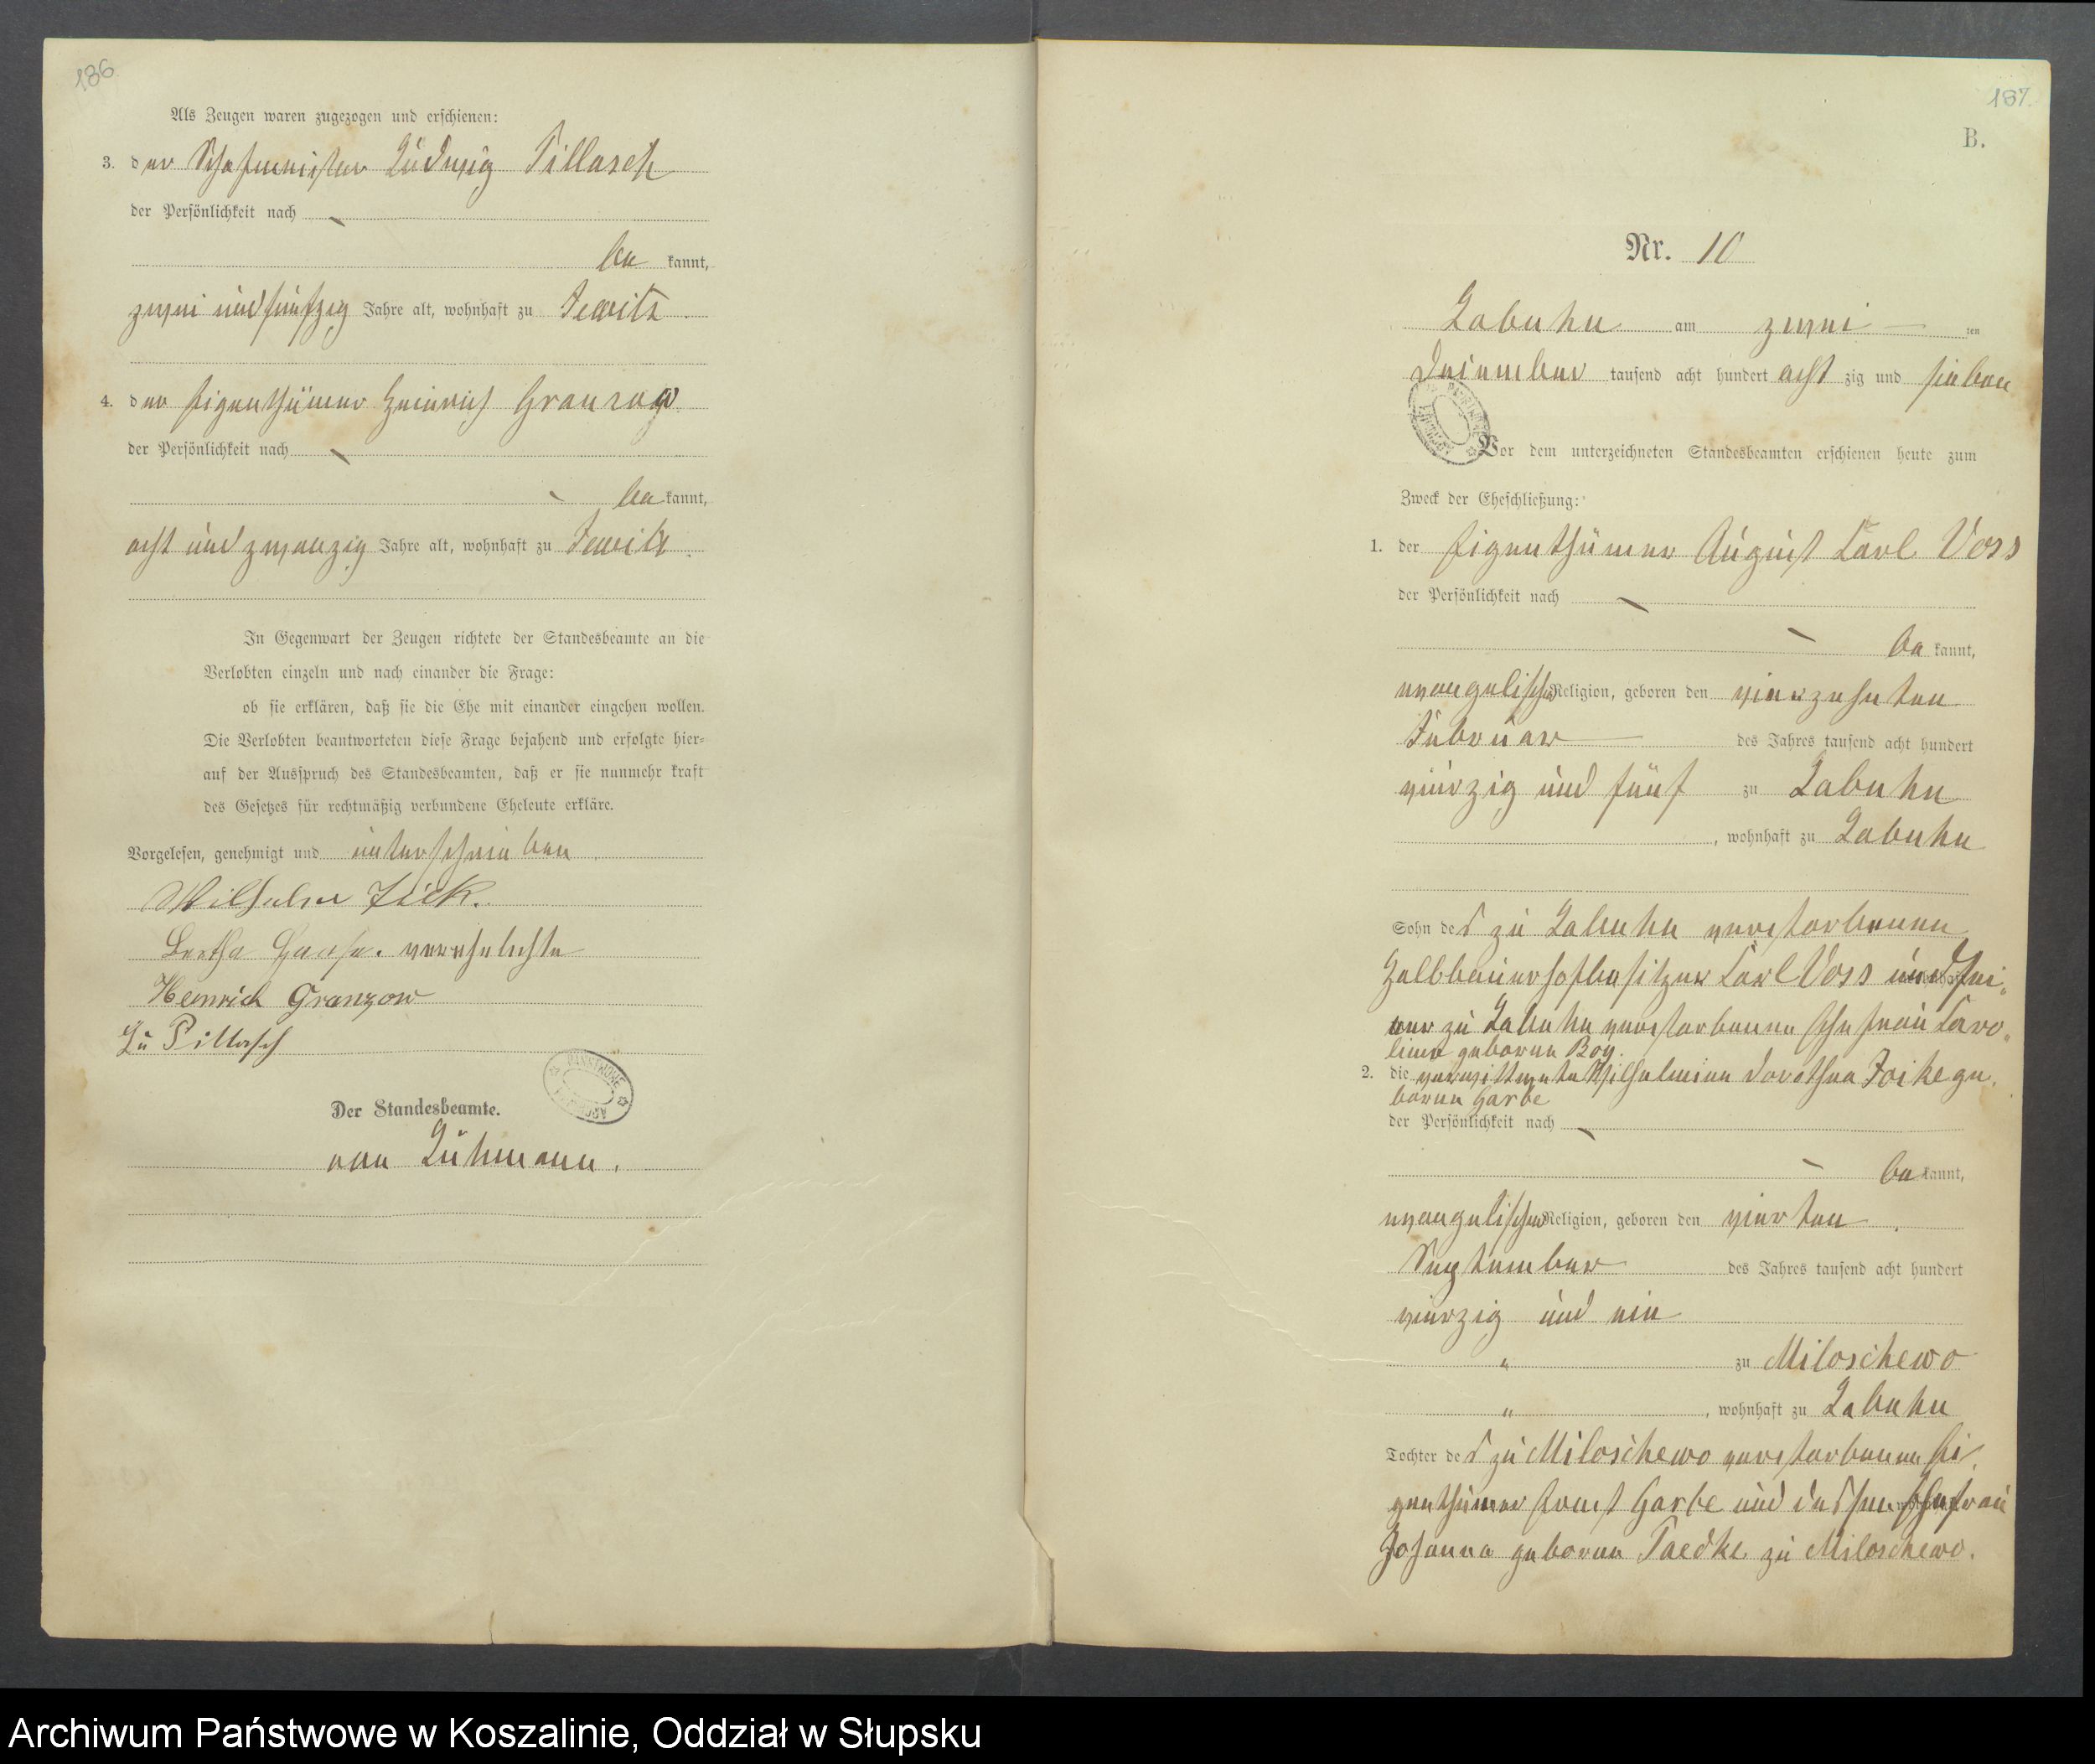 186
Als Zeugen waren zugezogen und erschienen:
3. der Schafmeister Ludwig Pillasch
der Persönlichkeit nach
be kannt,
zwei und fünfzig Jahre alt, wohnhaft zu Jewitz
4. der Eigenthümer Heinrich Granzow
der Persönlichkeit nach
be kannt,
acht und zwanzig Jahre alt, wohnhaft zu Jewitz
In Gegenwart der Zeugen richtete der Standesbeamte an die
Verlobten einzeln und nach einander die Frage:
ob sie erklären, daß sie die Ehe mit einander eingehen wollen.
Die Verlobten beantworteten diese Frage bejahend und erfolgte hier-
auf der Ausspruch des Standesbeamten, daß er sie nunmehr kraft
des Gesetzes für rechtmäßig verbundene Eheleute erkläre.
Vorgelesen, genehmigt und unterschrieben.
Wilhelm
Bertha verehelichte
Heinrich Granzow
Lu Pillasch
Der Standesbeamte.
von Luhmann.
187.
B.
Nr. 10
Labuhn am zwei ten
Dezember tausend acht hundert acht zig und sieben
Vor dem unterzeichneten Standesbeamten erschienen heute zum
Zweck der Eheschließung:
1. der Eigenthümer August Carl Voss
der Persönlichkeit nach
be kannt,
evangelischer Religion, geboren den vierzehnten
Februar des Jahres tausend acht hundert
vierzig und fünf zu Labuhn
, wohnhaft zu Labuhn
Sohn des zu Labuhn verstorbenen
Halbbauerhofbesitzer Carl Voss und sei-
ner zu Labuhn verstorbenen Ehefrau Caro-
line geborne Boy.
2. die verwittwete Wilhelmine Dorothea Joike ge-
borne Garbe
der Persönlichkeit nach
be kannt,
evangelischer Religion, geboren den vierten
September des Jahres tausend acht hundert
vierzig und ein
" zu Miloschewo
" , wohnhaft zu Labuhn
Tochter des zu Miloschewo verstorbenen Ei-
genthümer Ernst Garbe und dessen Ehefrau
Johanna geborne Taedke zu Miloschewo.
Archiwum Państwowe w Koszalinie, Oddział w Słupsku